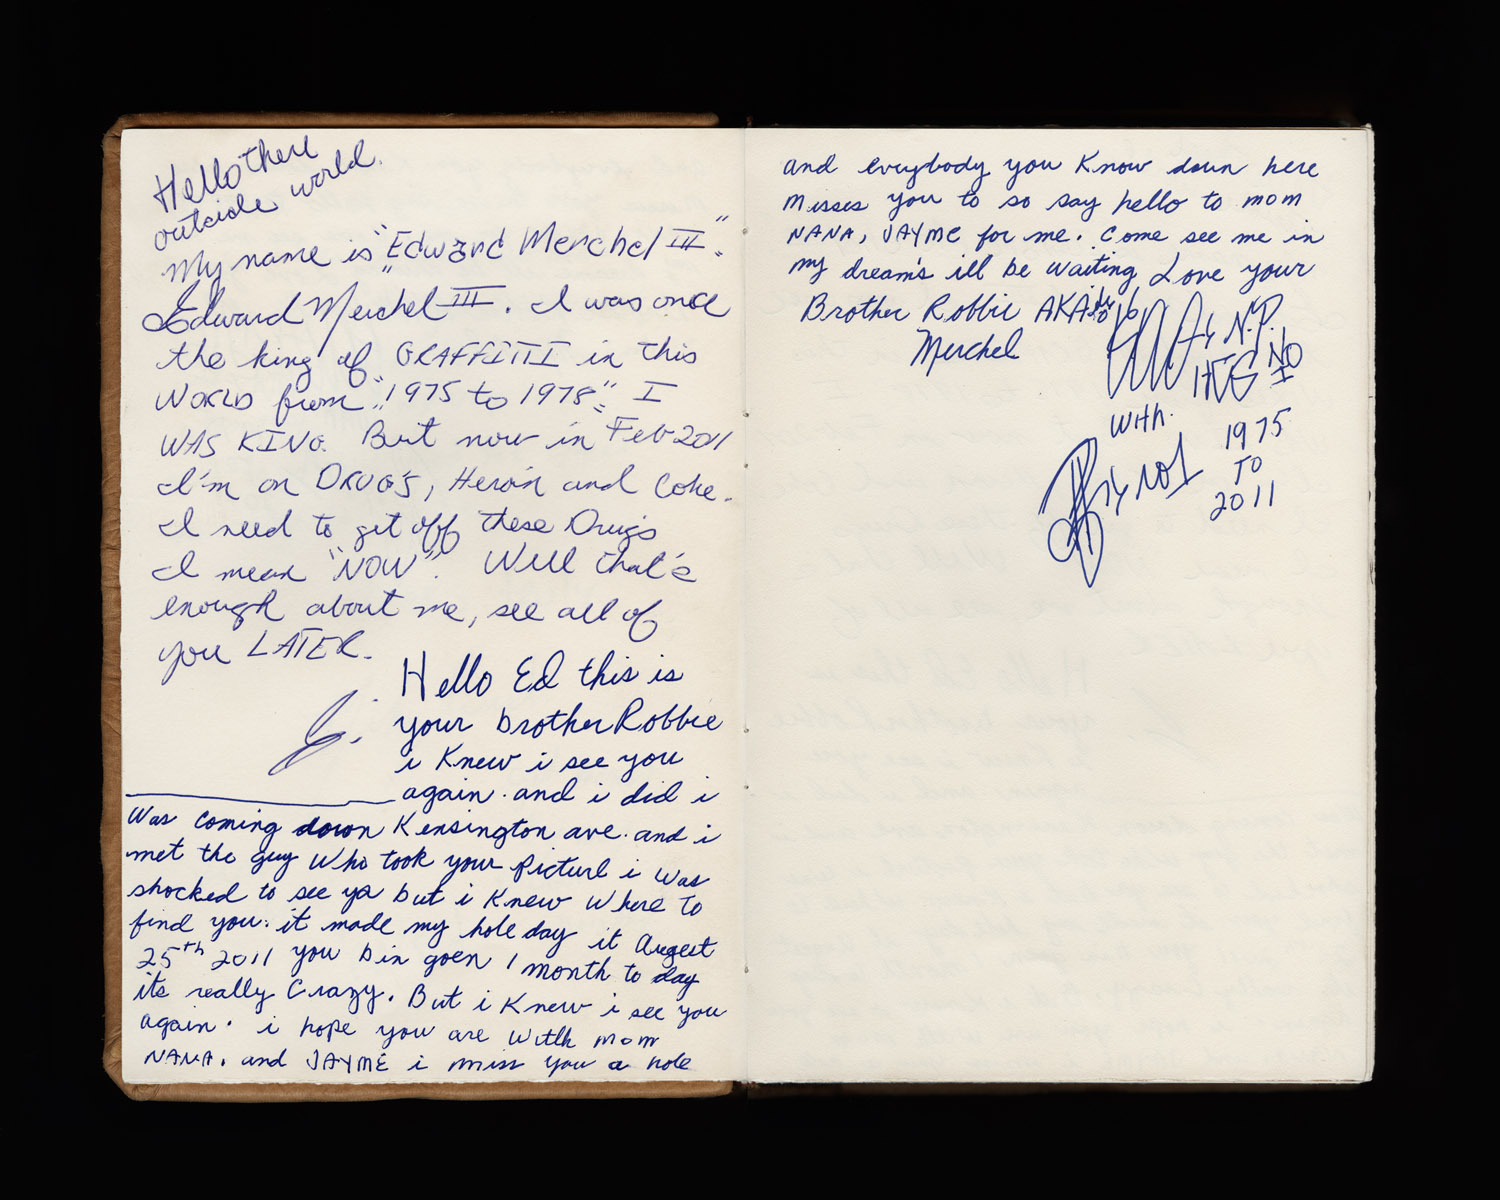 Hello there
outside world.
My name is "Edward Merchel III".
Edward Merchel III. I was once
the king of GRAFFITTI in this
WORLD from "1975 to 1978". I
WAS KING. But now in Feb 2011
I'm on DRUG'S, Heroin and Coke.
I need to get off these Drugs
I mean "NOW". Well that's
enough about me, see all of
you LATER.
Hello Ed this is
your brother Robbie
i Knew i see you
again. and i did i
was coming down Kensington ave. and i
met the guy who took your picture i was
shocked to see ya but i Knew where to
find you. it made my hole day it Augest
25th 2011 you bin goen 1 month to day
its really Crazy. But i Knew i see you
again. i hope you are with mom
NANA. and JAYME i miss you a hole
and evrybody you Know down here
misses you to so say hello to mom
NANA, JAYME for me. Come see me in
my dream's ill be waiting Love your
Brother Robbie AKA
Merchel
N.P.
HTG NO
1
with.
NO1
1975
TO
2011